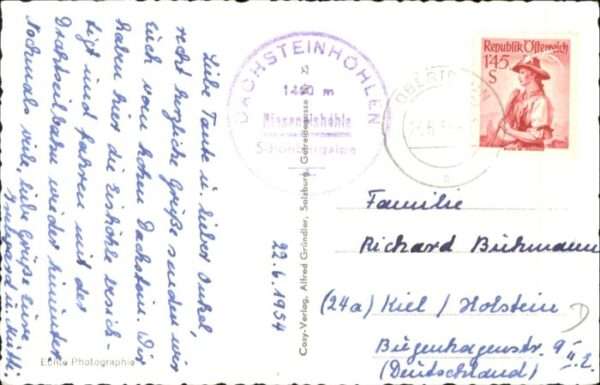 Liebe Tante u. lieber Onkel,
recht herzliche Grüße senden wir
Euch vom hohen Dachstein. Wir
haben hier die Eishöhle besich-
tigt und fahren mit der
Drahtseilbahn wieder hinunter
Nochmals viele, liebe Grüße Eure
u. Mutti
22.6.1954
Echte Photographie
Cosy-Verlag, Alfred Gründler, Salzburg, Getreidegasse
DACHSTEINHÖHLEN
m
Rieseneishöhle
Schönbergalpe
Republik Österreich
1·45
S
OBERTR
Familie
Richard Buhmann
(24a) Kiel / Holstein
Bugenhagenstr. 9
II.
(Deutschland)